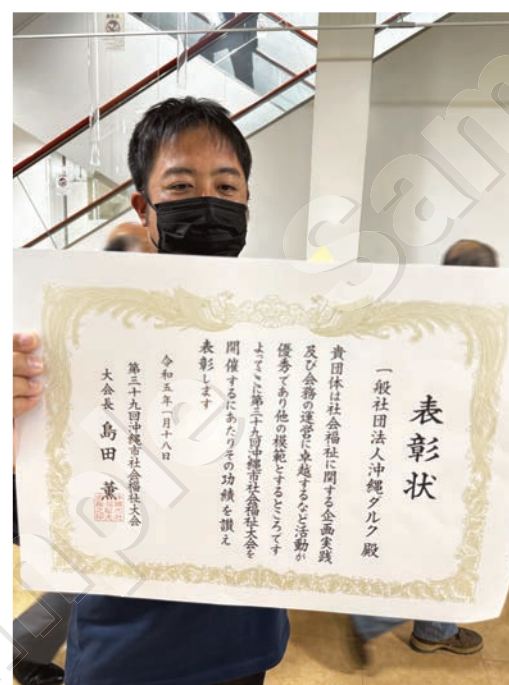 表彰状
一般社団法人沖縄ダルク 殿
貴団体は社会福祉に関する企画実践
及び会務の運営に卓越するなど活動が
優秀であり他の模範とするところです
よってここに第三十九回沖縄市社会福祉大会を
開催するにあたりその功績を讃え
表彰します
令和五年一月十八日
第三十九回沖縄市社会福祉大会
大会長 島田 薫
Sample